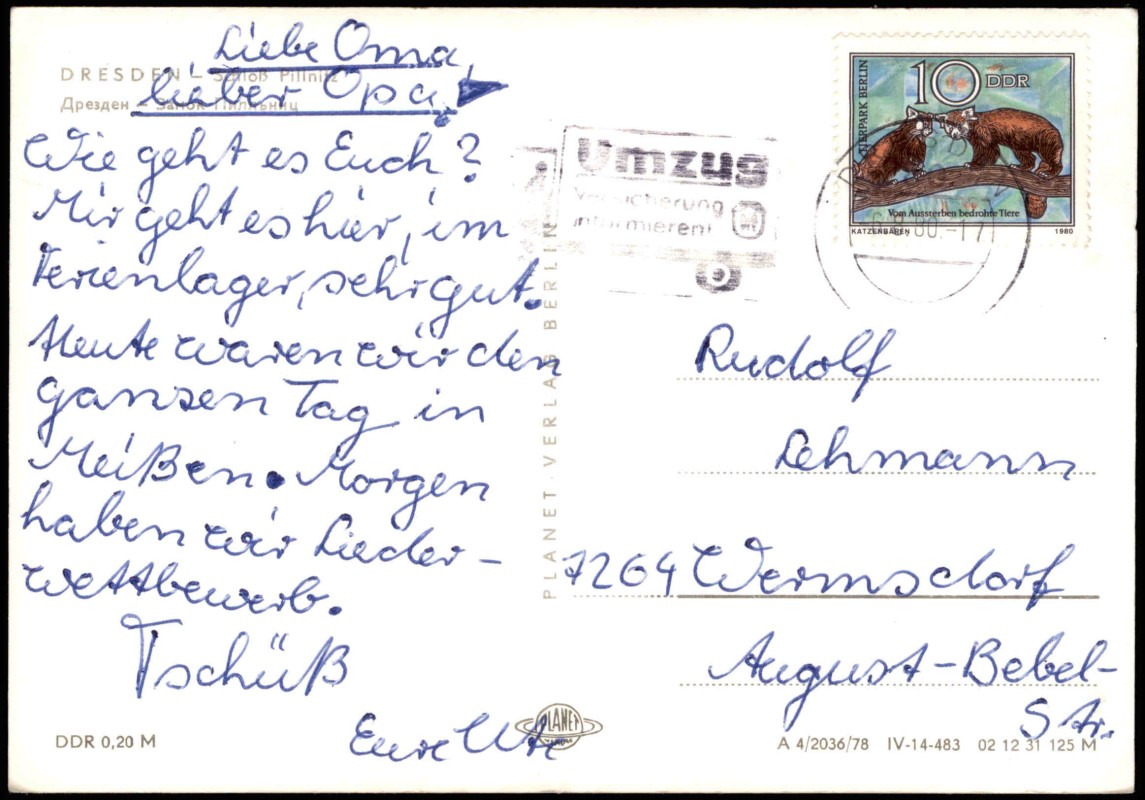 DRESDEN – Schloß Pillnitz
Дрезден – Замок Пилльниц
Liebe Oma,
lieber Opa!
Wie geht es Euch?
Mir geht es hier, im
Ferienlager, sehr gut.
Heute waren wir den
ganzen Tag in
Meißen. Morgen
haben wir Lieder-
wettbewerb.
Tschüß
Eure Ute
DDR 0,20 M
PLANET-VERLAG BERLIN
PLANET
Umzug
Versicherung
informieren!
TIERPARK BERLIN
10 DDR
Vom Aussterben bedrohte Tiere
KATZENBÄREN 1980
80.-17
Rudolf
Lehmann
7264 Wermsdorf
August-Bebel-
Str.
A 4/2036/78 IV-14-483 02 12 31 125 M